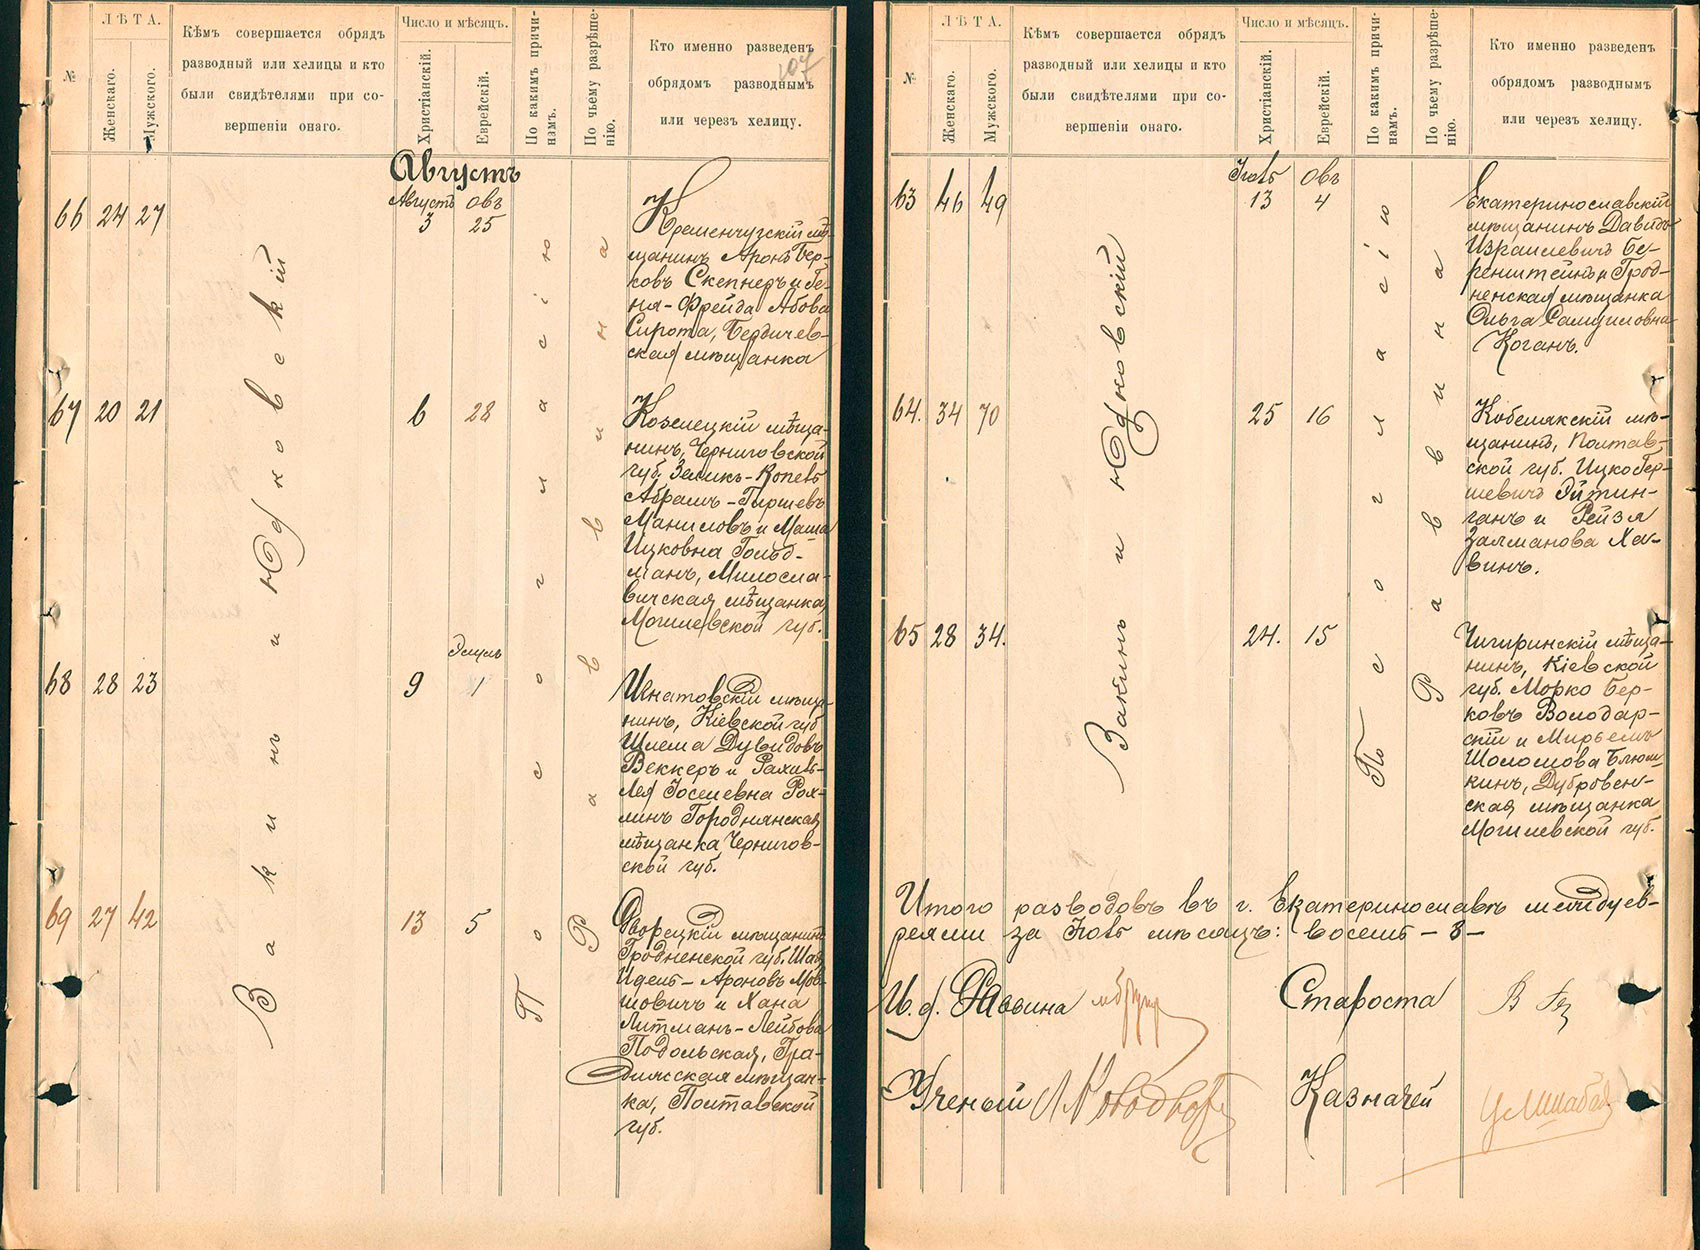 №
ЛѢТА.
Женскаго.
Мужского.
Кѣмъ совершается обрядъ
разводный или хелицы и кто
были свидѣтелями при со-
вершеніи онаго.
Число и мѣсяцъ.
Христіанскій.
Еврейскій.
По какимъ причи-
намъ.
По чьему разрѣше-
нію.
Кто именно разведенъ
обрядомъ разводнымъ
или черезъ хелицу.
107
Августъ
66 24 27
Августъ Овъ
3 25
Кременчугскій мѣ-
щанинъ Аронъ Бер-
ковъ Скепнеръ и Бе-
ня-Фрейда Абова
Сирота, Бердичев-
ская мѣщанка
67 20 21
6 28
Козелецкій мѣща-
нинъ, Черниговской
губ. Зеликъ-Копель
Абрамъ-Гиршевъ
Маниловъ и Маша
Ицковна Гольд-
манъ, Милосла-
вичская мѣщанка
Могилевской губ.
68 28 23
Элулъ
9 1
Игнатовскій мѣща-
нинъ, Кіевской губ
Шлема Дувидовъ
Веккеръ и Рахиль-
Лея Іоселевна Рох-
линъ Городнянская
мѣщанка Чернигов-
ской губ.
69 27 42
13 5
Дворецкій мѣщанинъ
Гродненской губ.
Ароновъ Мов-
шовичъ и Хана
Литманъ-Лейбова
Подольская, Гра-
дижская мѣщан-
ка, Полтавской
губ.
Закинъ и Юдновскій
По согласію
Раввина
№
ЛѢТА.
Женскаго.
Мужского.
Кѣмъ совершается обрядъ
разводный или хелицы и кто
были свидѣтелями при со-
вершеніи онаго.
Число и мѣсяцъ.
Христіанскій.
Еврейскій.
По какимъ причи-
намъ.
По чьему разрѣше-
нію.
Кто именно разведенъ
обрядомъ разводнымъ
или черезъ хелицу.
63 46 49
Іюль Овъ
13 4
Екатеринославскій
мѣщанинъ Давидъ
Израилевичъ Бе-
ренштейнъ и Грод-
ненская мѣщанка
Ольга Самуиловна
Коганъ.
64. 34 70
25 16
Кобелякскій мѣ-
щанинъ, Полтав-
ской губ. Ицко Гер-
шевичъ Эйтин-
ганъ и Рейзя
Залманова Ха-
винъ.
65 28 34.
24. 15
Чигиринскій мѣща-
нинъ, Кіевской
губ. Морко Бер-
ковъ Володар-
скій и Мирьемъ
Шоломова Блюм-
кинъ, Дубровен-
ская мѣщанка
Могилевской губ.
Закинъ и Юдновскій
По согласію
Раввина
Итого разводовъ въ г. Екатеринославѣ между ев-
реями за Іюль мѣсяцъ: восемь - 8 -
И. д. Раввина
Староста
Ученый
Казначей